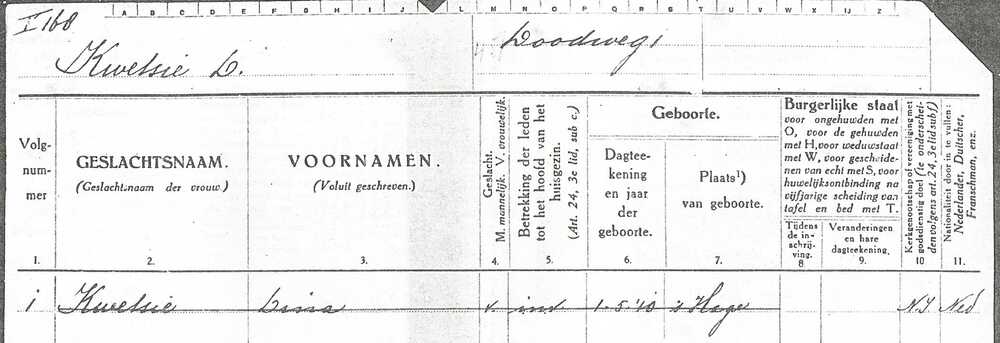 A B C D E F G H I J K L M N O P Q R S T U V W X IJ Z
I 168
Kwetsie L.
Doodweg 1
Volg-
num-
mer
GESLACHTSNAAM.
(Geslachtsnaam der vrouw.)
VOORNAMEN.
(Voluit geschreven.)
Geslacht.
M. mannelijk. V. vrouwelijk.
Betrekking der leden
tot het hoofd van het
huisgezin.
(Art. 24, 3e lid, sub c.)
Geboorte.
Dagtee-
kening
en jaar
der
geboorte.
Plaats¹)
van geboorte.
Burgerlijke staat
voor ongehuwden met
O, voor de gehuwden
met H, voor weduwstaat
met W, voor gescheide-
nen van echt met S, voor
huwelijksontbinding na
vijfjarige scheiding van
tafel en bed met T.
Tijdens
de in-
schrij-
ving.
Veranderingen
en hare
dagteekening.
Kerkgenootschap of vereeniging met
godsdienstig doel (te onderschei-
den volgens art. 24, 3e lid sub f)
Nationaliteit door in te vullen:
Nederlander, Duitscher,
Franschman, enz.
1. 2. 3. 4. 5. 6. 7. 8 9. 10 11.
1 Kwetsie Lina v. ind 1-5-'10 's Hage N.I. Ned